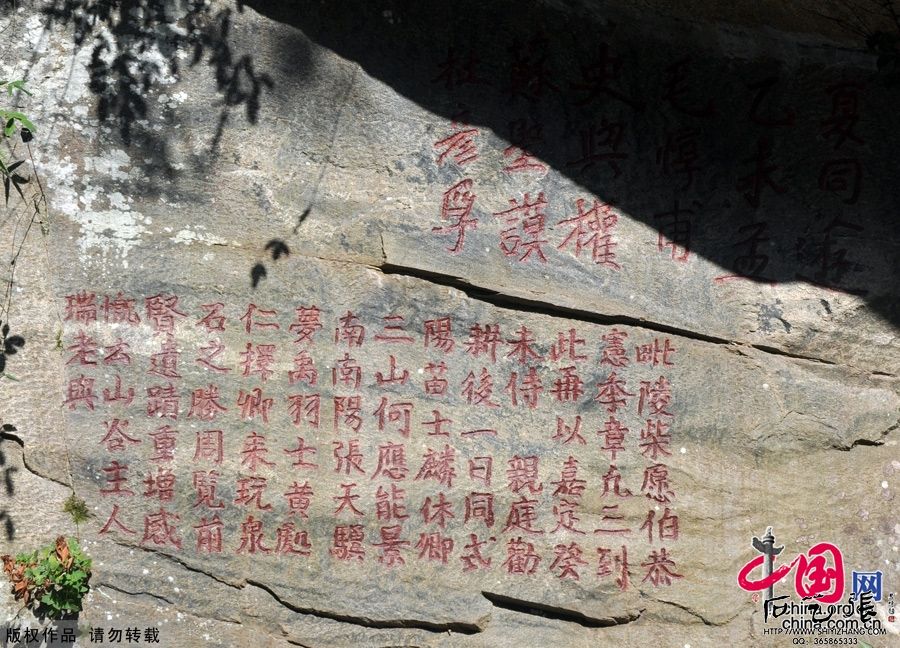 夏同
乙未孟
毛惇甫
史與權
蘇聖謨
杜彥孚
毗陵柴愿伯恭
憲季章凡三到
此再以嘉定癸
未侍 親庭勸
耕後一日同式
陽苗士麟休卿
三山何應能景
南南陽張天驥
夢禹羽士黃処
仁擇卿来玩泉
石之勝周覽前
賢遺蹟重增感
慨云山谷主人
瑞老與
中国网
china.org.cn
china.com.cn
HTTP://WWW.SHIYIZHANG.COM
QQ: 365865333
版权作品 请勿转载